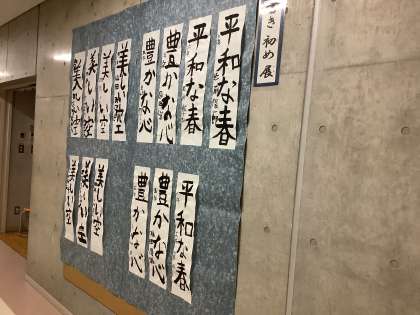 き初め展
平和な春
平和な春
豊かな心
豊かな心
美しい空
美しい空
美しい空
美しい空
平和な春
豊かな心
豊かな心
美しい空
美しい空
美しい空